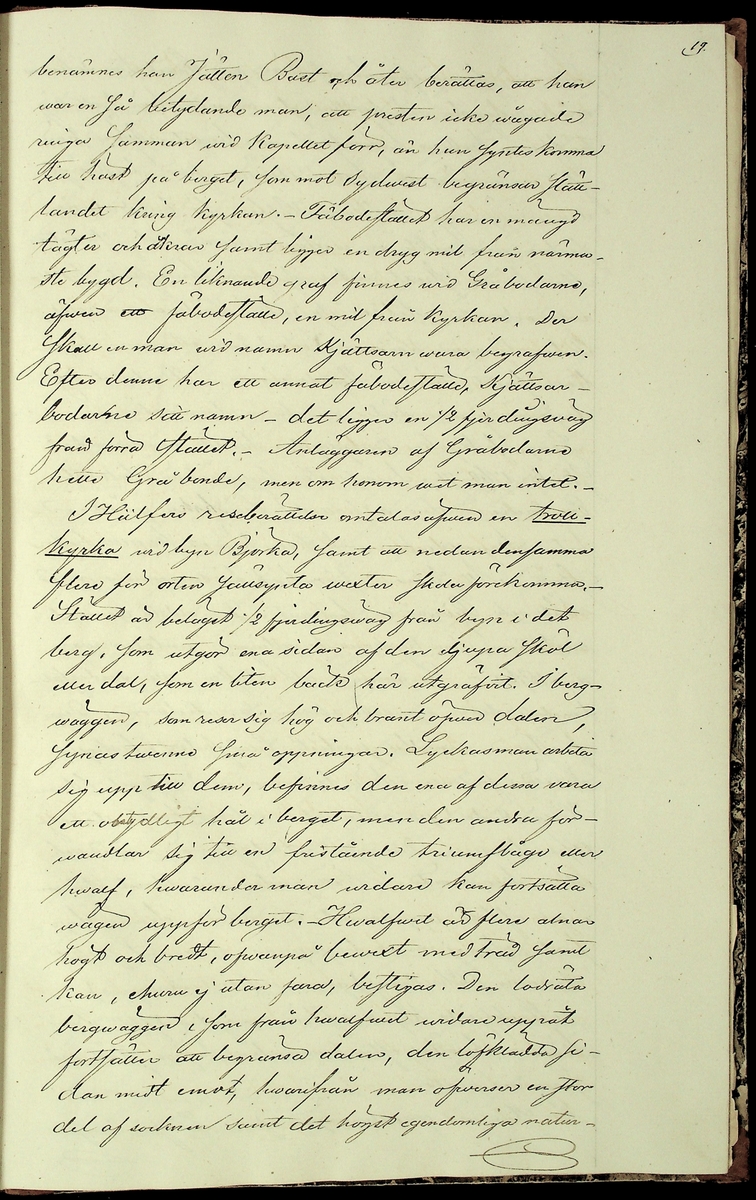 19.
benämnes han Jätten Bast och åter berättas, att han
war en så betydande man, att presten icke wågade
ringa samman wid Kapellet förr, än han syntes komma
till häst på berget, som mot sydwest begränsar slätt-
landet kring kyrkan. – Fäbodestället har en mängd
tägter och åkrar samt ligger en dryg mil från närma-
ste bygd. En liknande graf finnes wid Gråbodarne,
äfwen ett fäbodeställe, en mil från kyrkan. Der
skall en man wid namn Kjättsarn wara begrafwen.
Efter denne har ett annat fäbodeställe, Kjättsar-
bodarne sitt namn – det ligger en 1/2 fjerdingswäg
från förra stället. – Anläggaren af Gråbodarne
hette Grå bonde, men om honom wet man intet. –
I Hülfers reseberättelse omtalas äfwen en troll-
kyrka wid byn Björka, samt att nedan densamma
flere för orten sällsynta wexter skola förekomma. –
Stället är beläget 1/2 fjerdingswäg från byn i det
berg, som utgör ena sidan af den djupa skål
eller dal, som en liten bäck här utgräfwt. I berg-
wäggen, som reser sig hög och brant öfwer dalen,
synas twenne små öppningar. Lyckas man arbeta
sig upp till dem, befinnes den ena af dessa vara
ett obetydligt hål i berget, men den andra för-
wandlar sig till en fristående triumfbåge eller
hwalf, hwarunder man widare kan fortsätta
wägen uppför berget. – Hwalfwet är flere alnar
högt och bredt, ofwanpå bewext med träd samt
kan, ehuru ej utan fara, bestigas. Den lodräta
bergwäggen, som från hwalfwet widare uppåt
fortsätter att begränsa dalen, den löfklädda si-
dan midt emot, hwarifrån man öfwerser en stor
del af socknen samt det högst egendomliga natur-